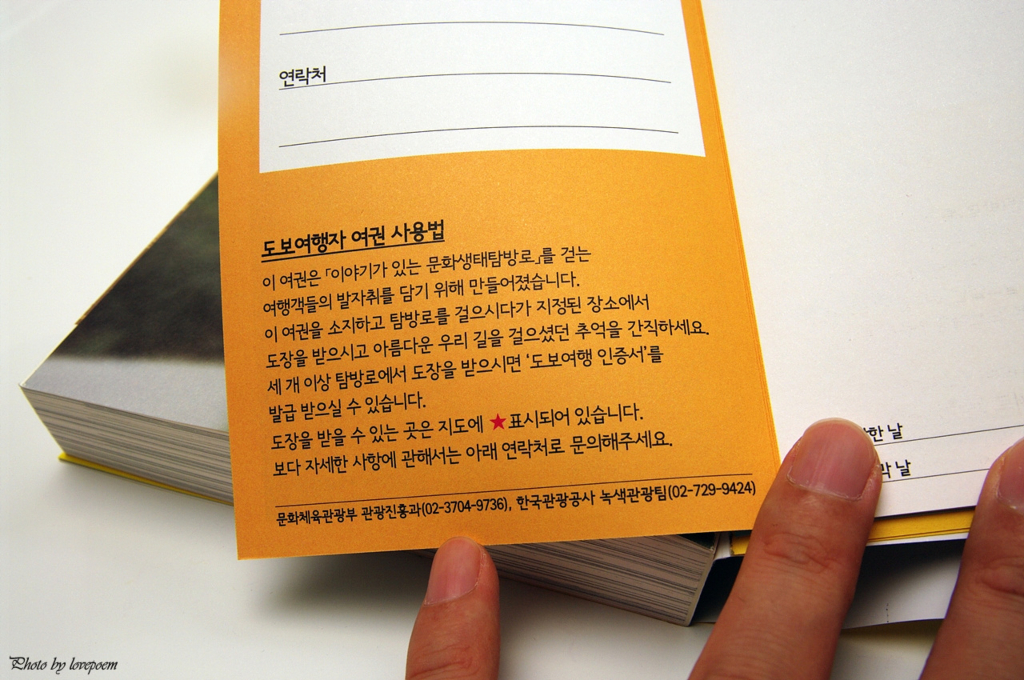 연락처
도보여행자 여권 사용법
이 여권은 「이야기가 있는 문화생태탐방로」를 걷는
여행객들의 발자취를 담기 위해 만들어졌습니다.
이 여권을 소지하고 탐방로를 걸으시다가 지정된 장소에서
도장을 받으시고 아름다운 우리 길을 걸으셨던 추억을 간직하세요.
세 개 이상 탐방로에서 도장을 받으시면 '도보여행 인증서'를
발급 받으실 수 있습니다.
도장을 받을 수 있는 곳은 지도에 ★표시되어 있습니다.
보다 자세한 사항에 관해서는 아래 연락처로 문의해주세요.
문화체육관광부 관광진흥과(02-3704-9736), 한국관광공사 녹색관광팀(02-729-9424)
한 날
막 날
Photo by lovepoem